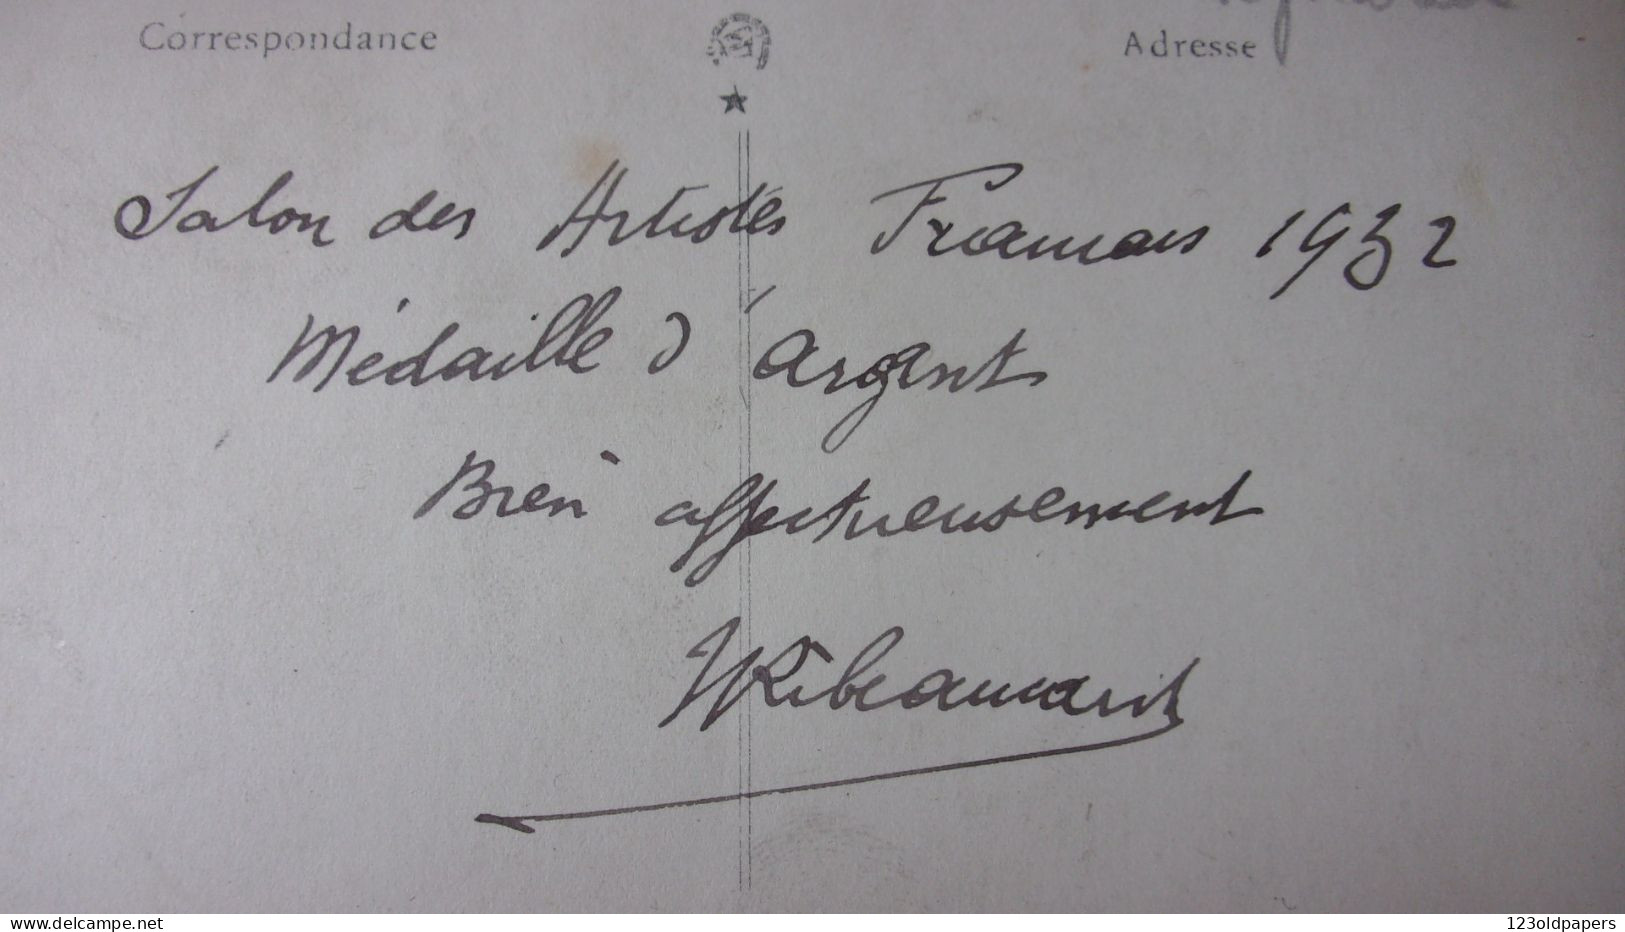 Correspondance
Adresse
Salon des Artistes Français 1932
Médaille d'Argent
Bien affectueusement
delcampe.net
123oldpapers